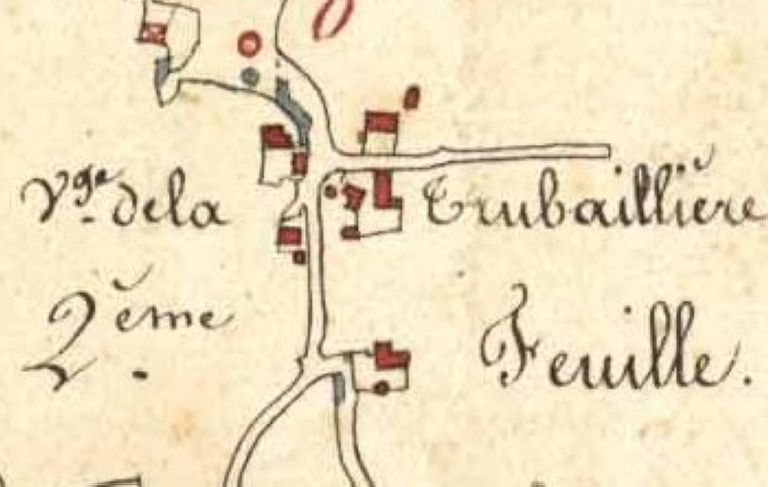 Vge. de la Trubaillière
2ème. Feuille.